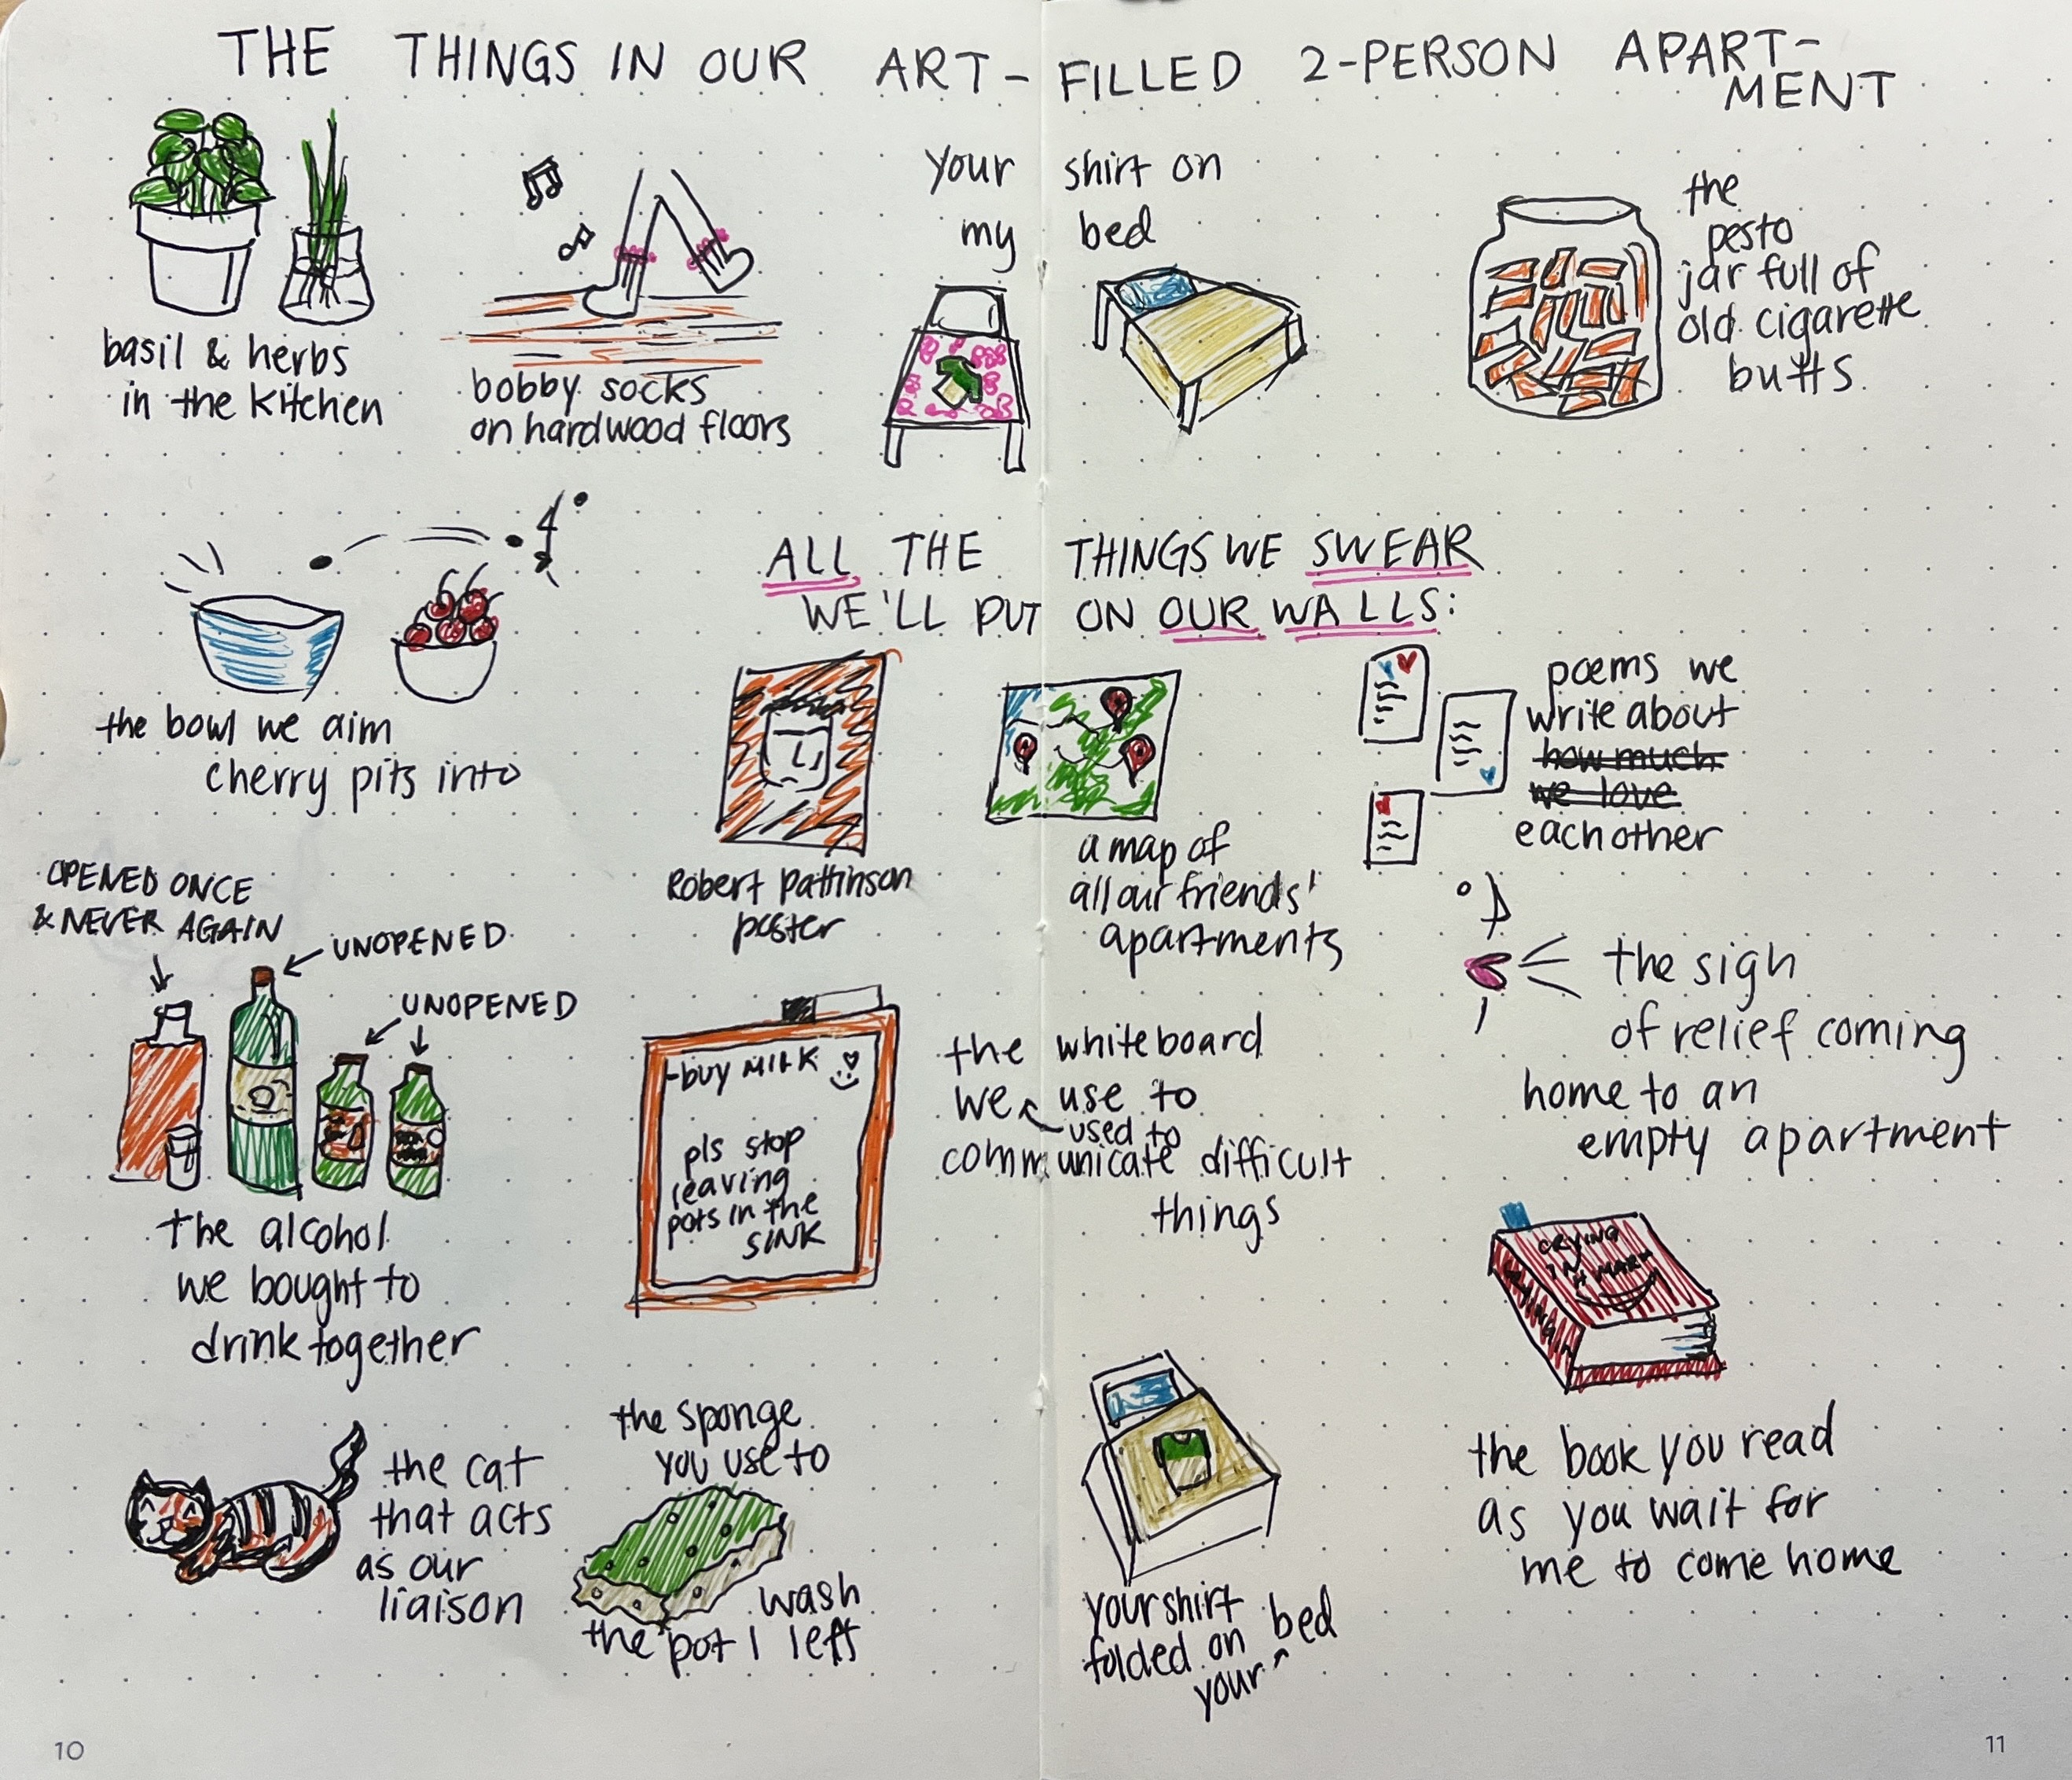 THE THINGS IN OUR ART-FILLED 2-PERSON APART-
MENT
basil & herbs
in the kitchen
bobby socks
on hardwood floors
your shirt on
my bed
the
pesto
jar full of
old cigarette
butts
the bowl we aim
cherry pits into
ALL THE THINGS WE SWEAR
WE'LL PUT ON OUR WALLS:
Robert Pattinson
poster
a map of
all our friends'
apartments
poems we
write about
how much
we love
each other
OPENED ONCE
& NEVER AGAIN
UNOPENED
UNOPENED
the alcohol
we bought to
drink together
-buy MILK
pls stop
leaving
pots in the
SINK
the whiteboard
we use to
used to
communicate difficult
things
the sigh
of relief coming
home to an
empty apartment
the cat
that acts
as our
liaison
the sponge
you use to
wash
the pot I left
your shirt
folded on bed
your
CRYING
IN
H MART
CRYING IN
the book you read
as you wait for
me to come home
10
11